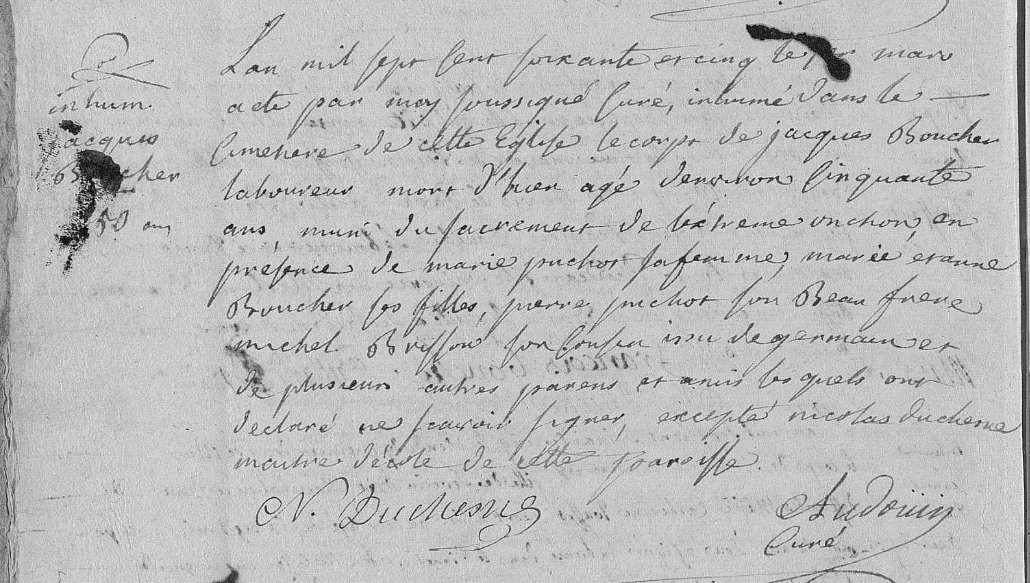 inhum.
jacques
Boucher
50 ans
L'an mil sept cent soixante et cinq le mars
acte par moy soussigné Curé, inhumé dans le
Cimetiere de cette Eglise le corps de jacques Boucher
laboureur mort d'hier agé denviron Cinquante
ans, muni du sacrement de l'extreme onction, en
présence de marie puchot sa femme, marie et anne
Boucher ses filles, pierre puchot son Beau frere
michel Brisson son Cousin issu de germain et
de plusieurs autres parens et amis lesquels ont
declaré ne scavoir signer, excepté nicolas duchesne
maitre d'école de cette paroisse.
N. Duchesne
Audoüin
Curé